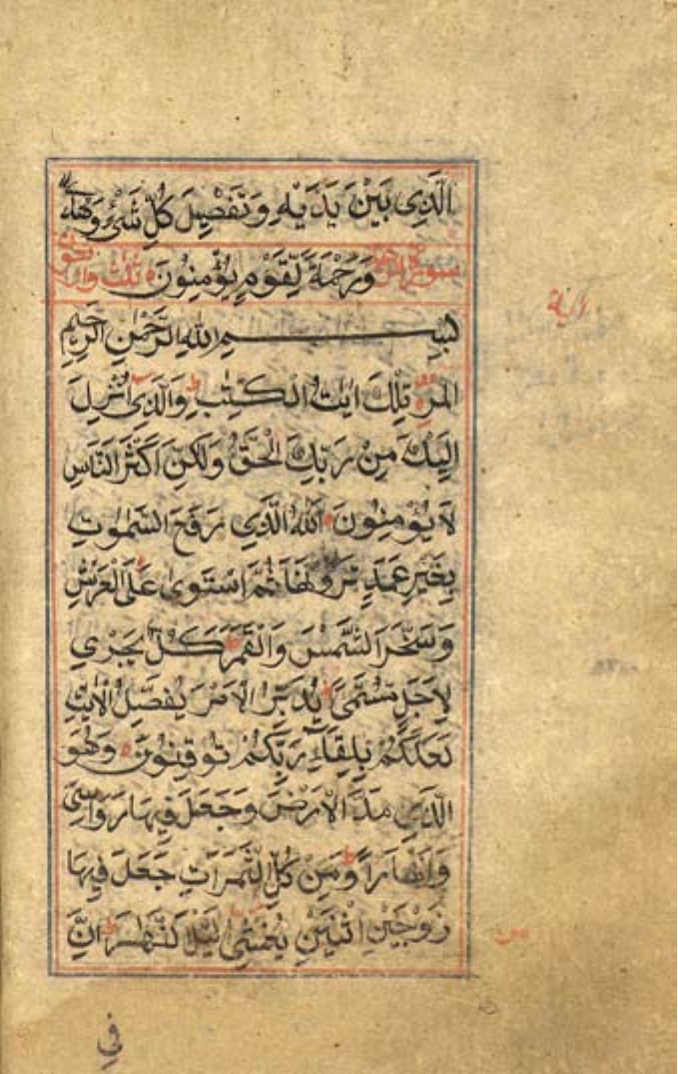 الَّذِي بَيْنَ يَدَيْهِ وَتَفْصِيلَ كُلِّ شَيْءٍ وَهُدًى
سورة الرعد وَرَحْمَةً لِّقَوْمٍ يُؤْمِنُونَ ثلث واربعون
بِسْمِ اللهِ الرَّحْمٰنِ الرَّحِيمِ
الٓمّٓرٰ تِلْكَ اٰيٰتُ الْكِتٰبِ ط وَالَّذِىٓ اُنْزِلَ
اِلَيْكَ مِنْ رَبِّكَ الْحَقُّ وَلٰكِنَّ اَكْثَرَ النَّاسِ
لَا يُؤْمِنُونَ اَللهُ الَّذِي رَفَعَ السَّمٰوٰتِ
بِغَيْرِ عَمَدٍ تَرَوْنَهَا ثُمَّ اسْتَوٰى عَلَى الْعَرْشِ
وَسَخَّرَ الشَّمْسَ وَالْقَمَرَ ط كُلٌّ يَجْرِي
لِاَجَلٍ مُّسَمًّى ط يُدَبِّرُ الْاَمْرَ يُفَصِّلُ الْاٰيٰتِ
لَعَلَّكُمْ بِلِقَآءِ رَبِّكُمْ تُوقِنُونَ وَهُوَ
الَّذِي مَدَّ الْاَرْضَ وَجَعَلَ فِيهَا رَوَاسِيَ
وَاَنْهَارًا ط وَمِنْ كُلِّ الثَّمَرَاتِ جَعَلَ فِيهَا
زَوْجَيْنِ اثْنَيْنِ يُغْشِي الَّيْلَ النَّهَارَ ط اِنَّ
فِي